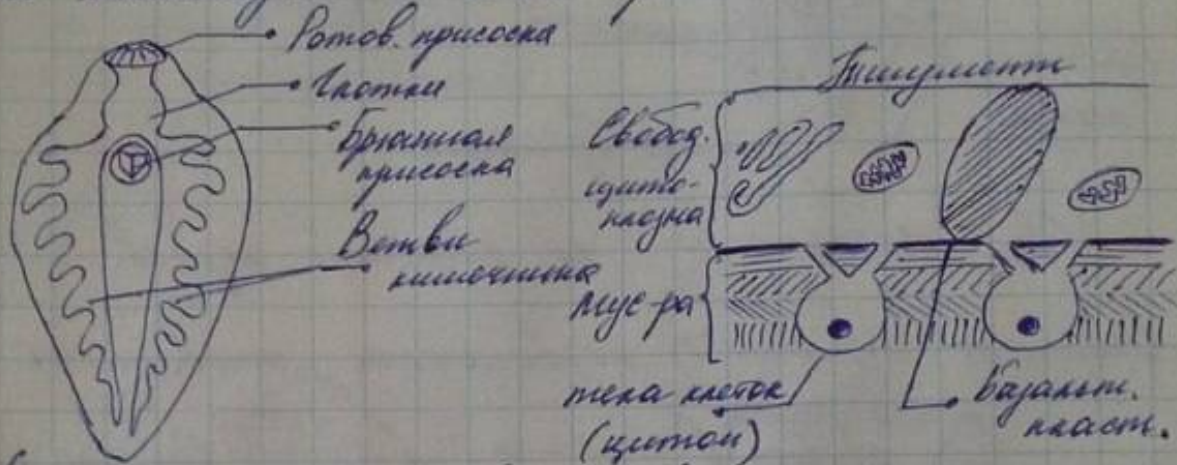 Ротов. присоска
Глотка
Брюшная
присоска
Ветви
кишечника
Тегумент
Свобод.
цито-
плазма
мус-ра
тела клеток
(цитон)
базальн.
пласт.